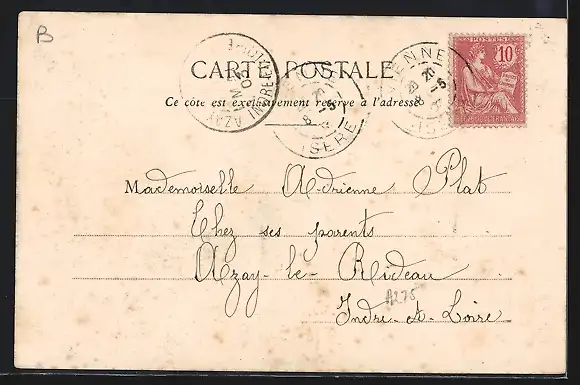 B
CARTE POSTALE
Ce côté est exclusivement réservé à l'adresse
AZAY
INDRE-ET-LOIRE
ISÈRE
VIENNE
POSTES
10
RÉPUBLIQUE FRANÇAISE
Mademoiselle Adrienne Plat
Chez ses parents
Azay-le-Rideau
A275
Indre-et-Loire